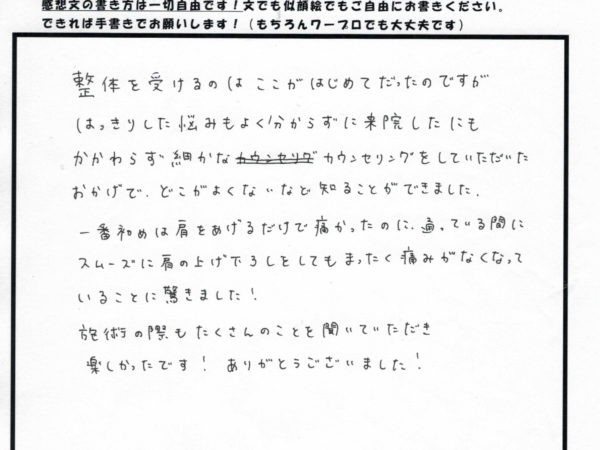 感想文の書き方は一切自由です！文でも似顔絵でもご自由にお書きください。
できれば手書きでお願いします！（もちろんワープロでも大丈夫です）
整体を受けるのは ここが はじめてだったのですが
はっきりした 悩みもよく分からずに 来院したにも
かかわらず 細かな カウンセリグ カウンセリングをしていただいた
おかげで、どこがよくないなど 知ることができました。
一番初めは肩をあげるだけで痛かったのに、通っている間に
スムーズに肩の上げ下ろしをしてもまったく痛みがなくなって
いることに驚きました！
施術の際もたくさんのことを聞いていただき
楽しかったです！ありがとうございました！